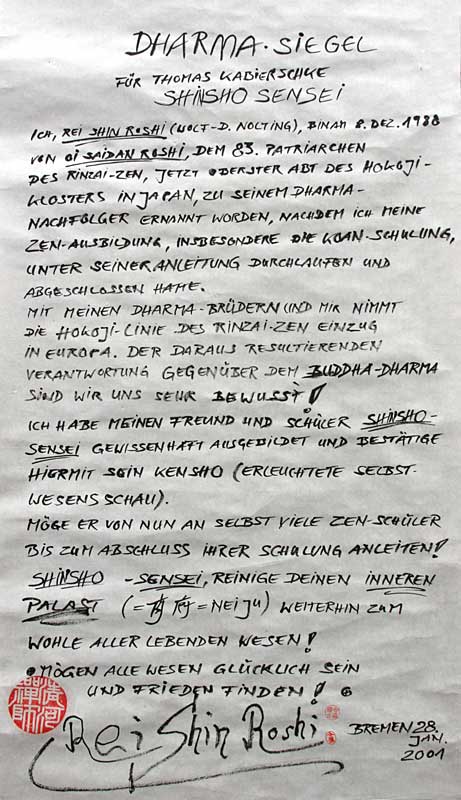 DHARMA·SIEGEL
FÜR THOMAS KABIERSCHKE
SHINSHO SENSEI
ICH, REI SHIN ROSHI (WOLF-D. NOLTING), BIN AM 8. DEZ. 1988
VON OI SAIDAN ROSHI, DEM 83. PATRIARCHEN
DES RINZAI-ZEN, JETZT OBERSTER ABT DES HOKOJI-
KLOSTERS IN JAPAN, ZU SEINEM DHARMA-
NACHFOLGER ERNANNT WORDEN, NACHDEM ICH MEINE
ZEN-AUSBILDUNG, INSBESONDERE DIE KOAN-SCHULUNG,
UNTER SEINER ANLEITUNG DURCHLAUFEN UND
ABGESCHLOSSEN HATTE.
MIT MEINEN DHARMA-BRÜDERN UND MIR NIMMT
DIE HOKOJI-LINIE DES RINZAI-ZEN EINZUG
IN EUROPA. DER DARAUS RESULTIERENDEN
VERANTWORTUNG GEGENÜBER DEM BUDDHA-DHARMA
SIND WIR UNS SEHR BEWUSST!
ICH HABE MEINEN FREUND UND SCHÜLER SHINSHO-
SENSEI GEWISSENHAFT AUSGEBILDET UND BESTÄTIGE
HIERMIT SEIN KENSHO (ERLEUCHTETE SELBST-
WESENSSCHAU).
MÖGE ER VON NUN AN SELBST VIELE ZEN-SCHÜLER
BIS ZUM ABSCHLUSS IHRER SCHULUNG ANLEITEN!
SHINSHO-SENSEI, REINIGE DEINEN INNEREN
PALAST (= = NEIJU) WEITERHIN ZUM
WOHLE ALLER LEBENDEN WESEN!
• MÖGEN ALLE WESEN GLÜCKLICH SEIN
UND FRIEDEN FINDEN! •
Rei Shin Roshi
BREMEN 28.
JAN.
2001